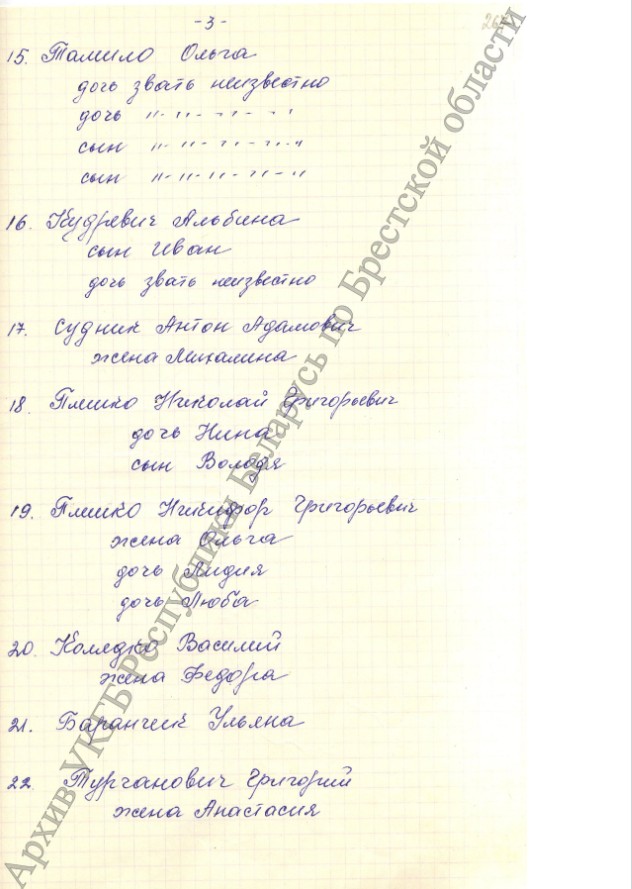 -3-
15. Томило Ольга
дочь звать неизвестно
дочь "-"-"-"-"
сын "-"-"-"-"
сын "-"-"-"-"
16. Кудревич Альбина
сын Иван
дочь звать неизвестно
17. Судник Антон Адамович
жена Михалина
18. Плишко Николай Григорьевич
дочь Нина
сын Володя
19. Плишко Никифор Григорьевич
жена Ольга
дочь Лидия
дочь Люба
20. Колядко Василий
жена Федора
21. Баранчик Ульяна
22. Турганович Григорий
жена Анастасия
Архив УКГБ Республики Беларусь по Брестской области